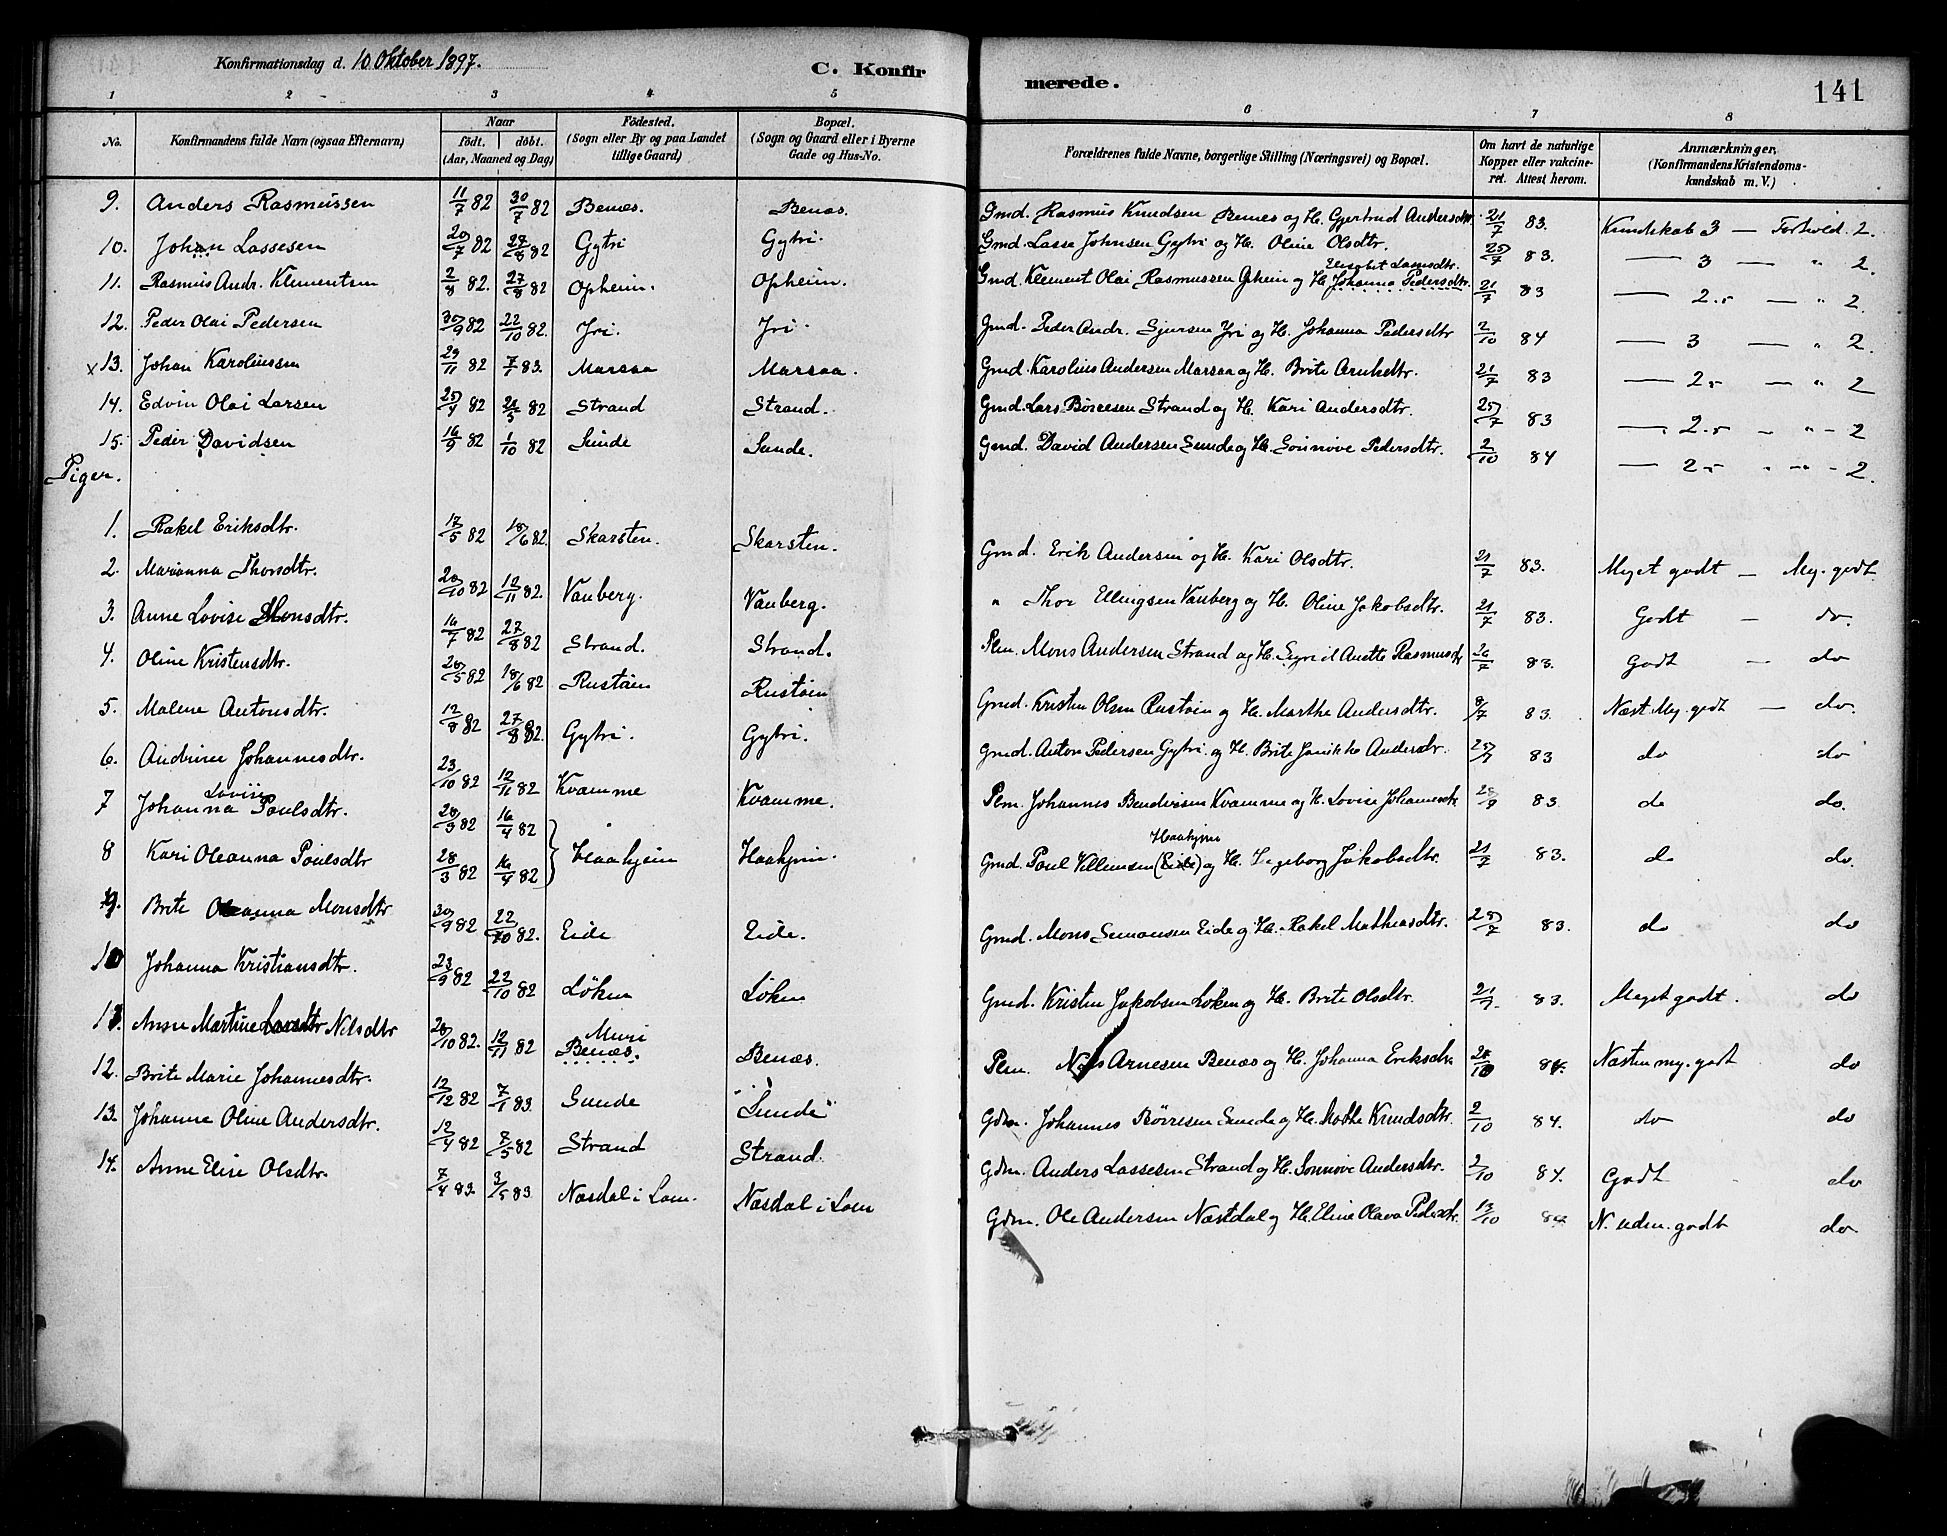 Konfirmationsdag d. 10 Oktober 1897.
C. Konfirmerede.
141
1 2 3 4 5 6 7 8
No. Konfirmandens fulde Navn (ogsaa Efternavn) Naar født. døbt. (Aar, Maaned og Dag) Fødested. (Sogn eller By og paa Landet tillige Gaard) Bopæl. (Sogn og Gaard eller i Byerne Gade og Hus-No. Forældrenes fulde Navne, borgerlige Stilling (Næringsvei) og Bopæl. Om havt de naturlige Kopper eller vakcineret. Attest herom. Anmærkninger, (Konfirmandens Kristendomskundskab m. V.)
9. Anders Rasmussen 11/7 82 30/7 82 Benæs. Benæs. Gmd. Rasmus Knudsen Benæs og H. Gjertrud Andersdtr. 21/7 83. Kundskab 3 — Forhold 2.
10. Johan Lassesen 20/7 82 27/8 82 Gytri Gytri. Gmd. Lasse Johnsen Gytri og H. Oline Olsdtr. 25/7 83. — 3 — " 2.
11. Rasmus Andr. Klementsen 2/8 82. 27/8 82 Opheim. Opheim. Gmd. Klement Olai Rasmussen Opheim og H. Johanna Pedersdtr. 21/7 83 — 2.5 — " 2.
12. Peder Olai Pedersen 30/9 82 22/10 82. Yri. Yri. Gmd. Peder Andr. Sjursen Yri og H. Johanna Pedersdtr 2/10 84 — 3 — " 2.
x 13. Johan Karoliussen 29/11 82 7/1 83. Marsaa Marsaa. Gmd. Karolius Andersen Marsaa og H. Brite 21/7 83 — 2.5 — " 2
14. Edvin Olai Larsen 25/4 82 21/5 82 Strand Strand. Gmd. Lars Børresen Strand og H. Kari Andersdtr. 25/7 83 — 2.5 — " - 2
15. Peder Davidsen 16/9 82 1/10 82 Sunde Sunde. Gmd. David Andersen Sunde og H. Sønnøve Pedersdtr. 2/10 84 — 2.5 " " - 2.
Piger.
1. Rakel Eriksdtr. 17/5 82 18/6 82. Skarsten. Skarsten. Gmd. Erik Andersen og H. Kari Olsdtr. 21/7 83. Meget godt — Meg. godt
2. Marianna Thorsdtr. 20/10 82 12/11 82. Vanberg. Vanberg. " Thor Ellingsen Vanberg og H. Oline Jakobsdtr. 21/7 83. Godt — do.
3. Anne Lovise Monsdtr. 16/7 82 27/8 82 Strand. Strand. Plm. Mons Andersen Strand og H. Syrid Anette Rasmusdtr 26/7 83. Godt — do
4. Oline Kristensdtr. 28/5 82 18/6 82 Rustøin Rustøin Gmd. Kristen Olsen Rustøin og H. Marthe Andersdtr. 8/7 83. Næst Meg. godt — do.
5. Malene Antonsdtr. 12/8 82 27/8 82. Gytri. Gytri. Gmd. Anton Pedersen Gytri og H. Brite Janikke Andersdtr. 25/7 83 do do
6. Andrine Johannesdtr. 23/10 82 12/11 82 Kvamme Kvamme. Plm. Johannes Bendixsen Kvamme og H. Lovise Johannesdtr 83. do do.
7 Johanna Lovise Poulsdtr. 28/3 82 16/4 82 Haahjem Haahjem. Gmd. Poul Villumsen (Eide) Haahjem og H. Ingeborg Jakobsdtr. 21/7 83. do do.
8 Kari Oleanna Poulsdtr 28/3 82 16/4 82
9. Brite Oleanna Monsdtr 30/9 82 22/10 82. Eide Eide. Gmd. Mons Simonsen Eide og H. Rakel Mathiasdtr. 25/7 83. do do
10 Johanna Kristiansdtr. 23/9 82 22/10 82 Løken Løken Gmd. Kristen Jakobsen Løken og H. Brite Olsdtr. 21/7 83. Meget godt. do
11. Anne Martine Larsdtr Nilsdtr 28/10 82. 12/11 82 Muri Benæs. Benæs. Plm. Nils Arnesen Benæs og H. Johanna Eriksdtr. 84. Næsten meg. godt do
12. Brite Marie Johannesdtr. 12/12 82 7/1 83. Sunde "Sunde" Gdm. Johannes Børresen Sunde og H. Marthe Knudsdtr. 2/10 84. do do
13. Johanne Oline Andersdtr. 12/4 82 7/5 82 Strand Strand. Gdm. Anders Lassesen Strand og H. Sønnøve Andersdtr. 2/10 84. Godt do
14. Anne Elise Olsdtr. 7/4 83. 3/5 83 Næsdal i Lom. Næsdal i Lom Gdm. Ole Andersen Næsdal og H. Eline Olava Pedersdtr. 13/10 84 N. uden. godt do